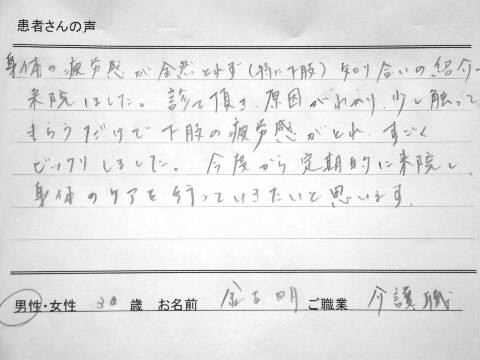 患者さんの声
身体の疲労感が全然とれず(特に下肢)知り合いの紹介で
来院しました。診て頂き、原因がわかり、少し触って
もらうだけで下肢の疲労感がとれ、すごく
ビックリしました。今度から定期的に来院し、
身体のケアを行っていきたいと思います。
男性・女性 30歳 お名前 金古明 ご職業 介護職